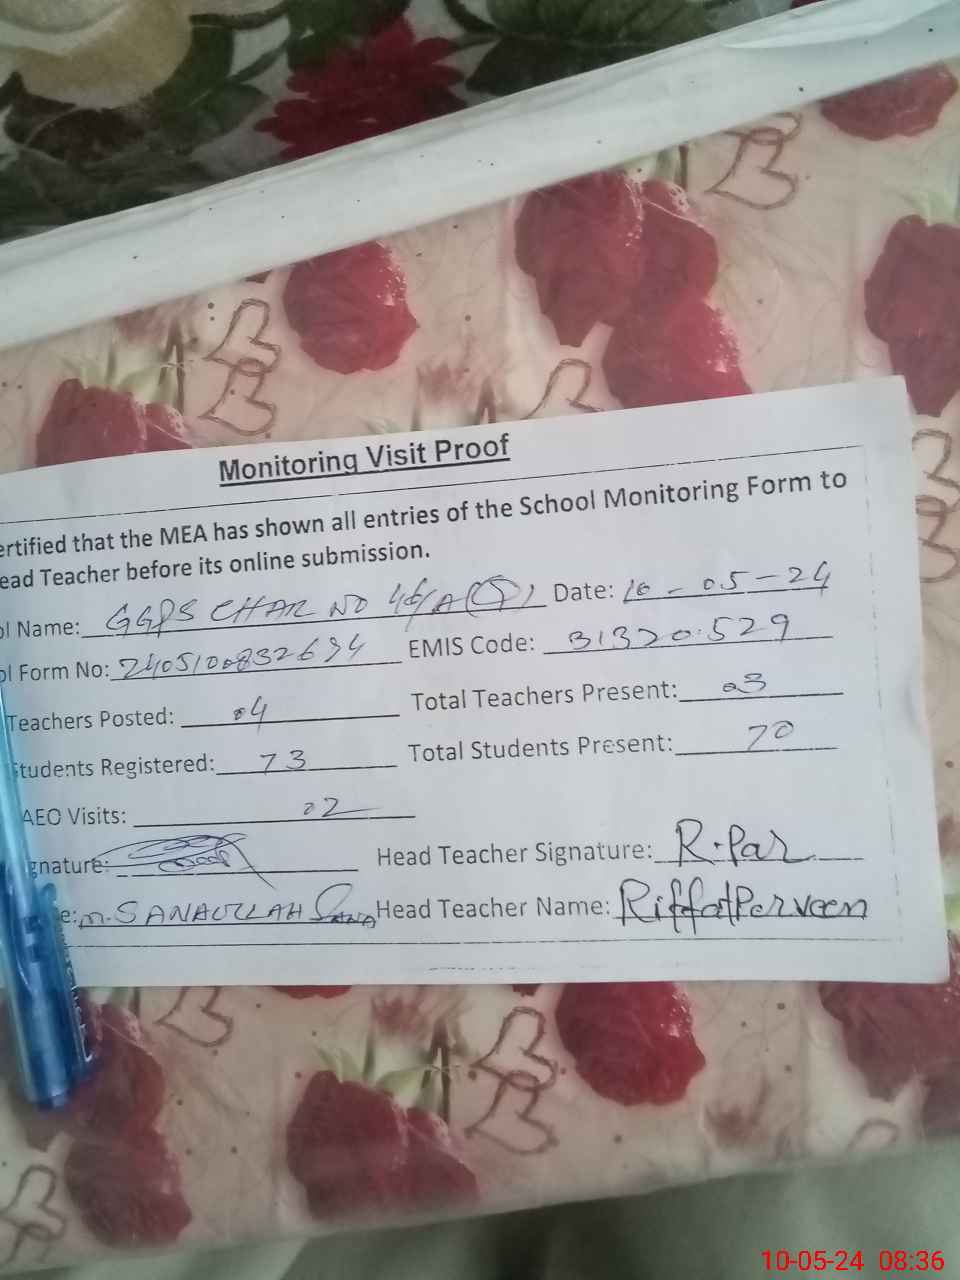 Monitoring Visit Proof
ertified that the MEA has shown all entries of the School Monitoring Form to
ead Teacher before its online submission.
ol Name: GGPS CHAK NO 46/A(S) Date: 10-05-24
ol Form No: 2405100832694 EMIS Code: 31320529
Teachers Posted: 04 Total Teachers Present: 03
Students Registered: 73 Total Students Present: 70
AEO Visits: 02
gnature: Head Teacher Signature: R.Par
e: M.SANAULLAH Head Teacher Name: Riffat Parveen
10-05-24 08:36